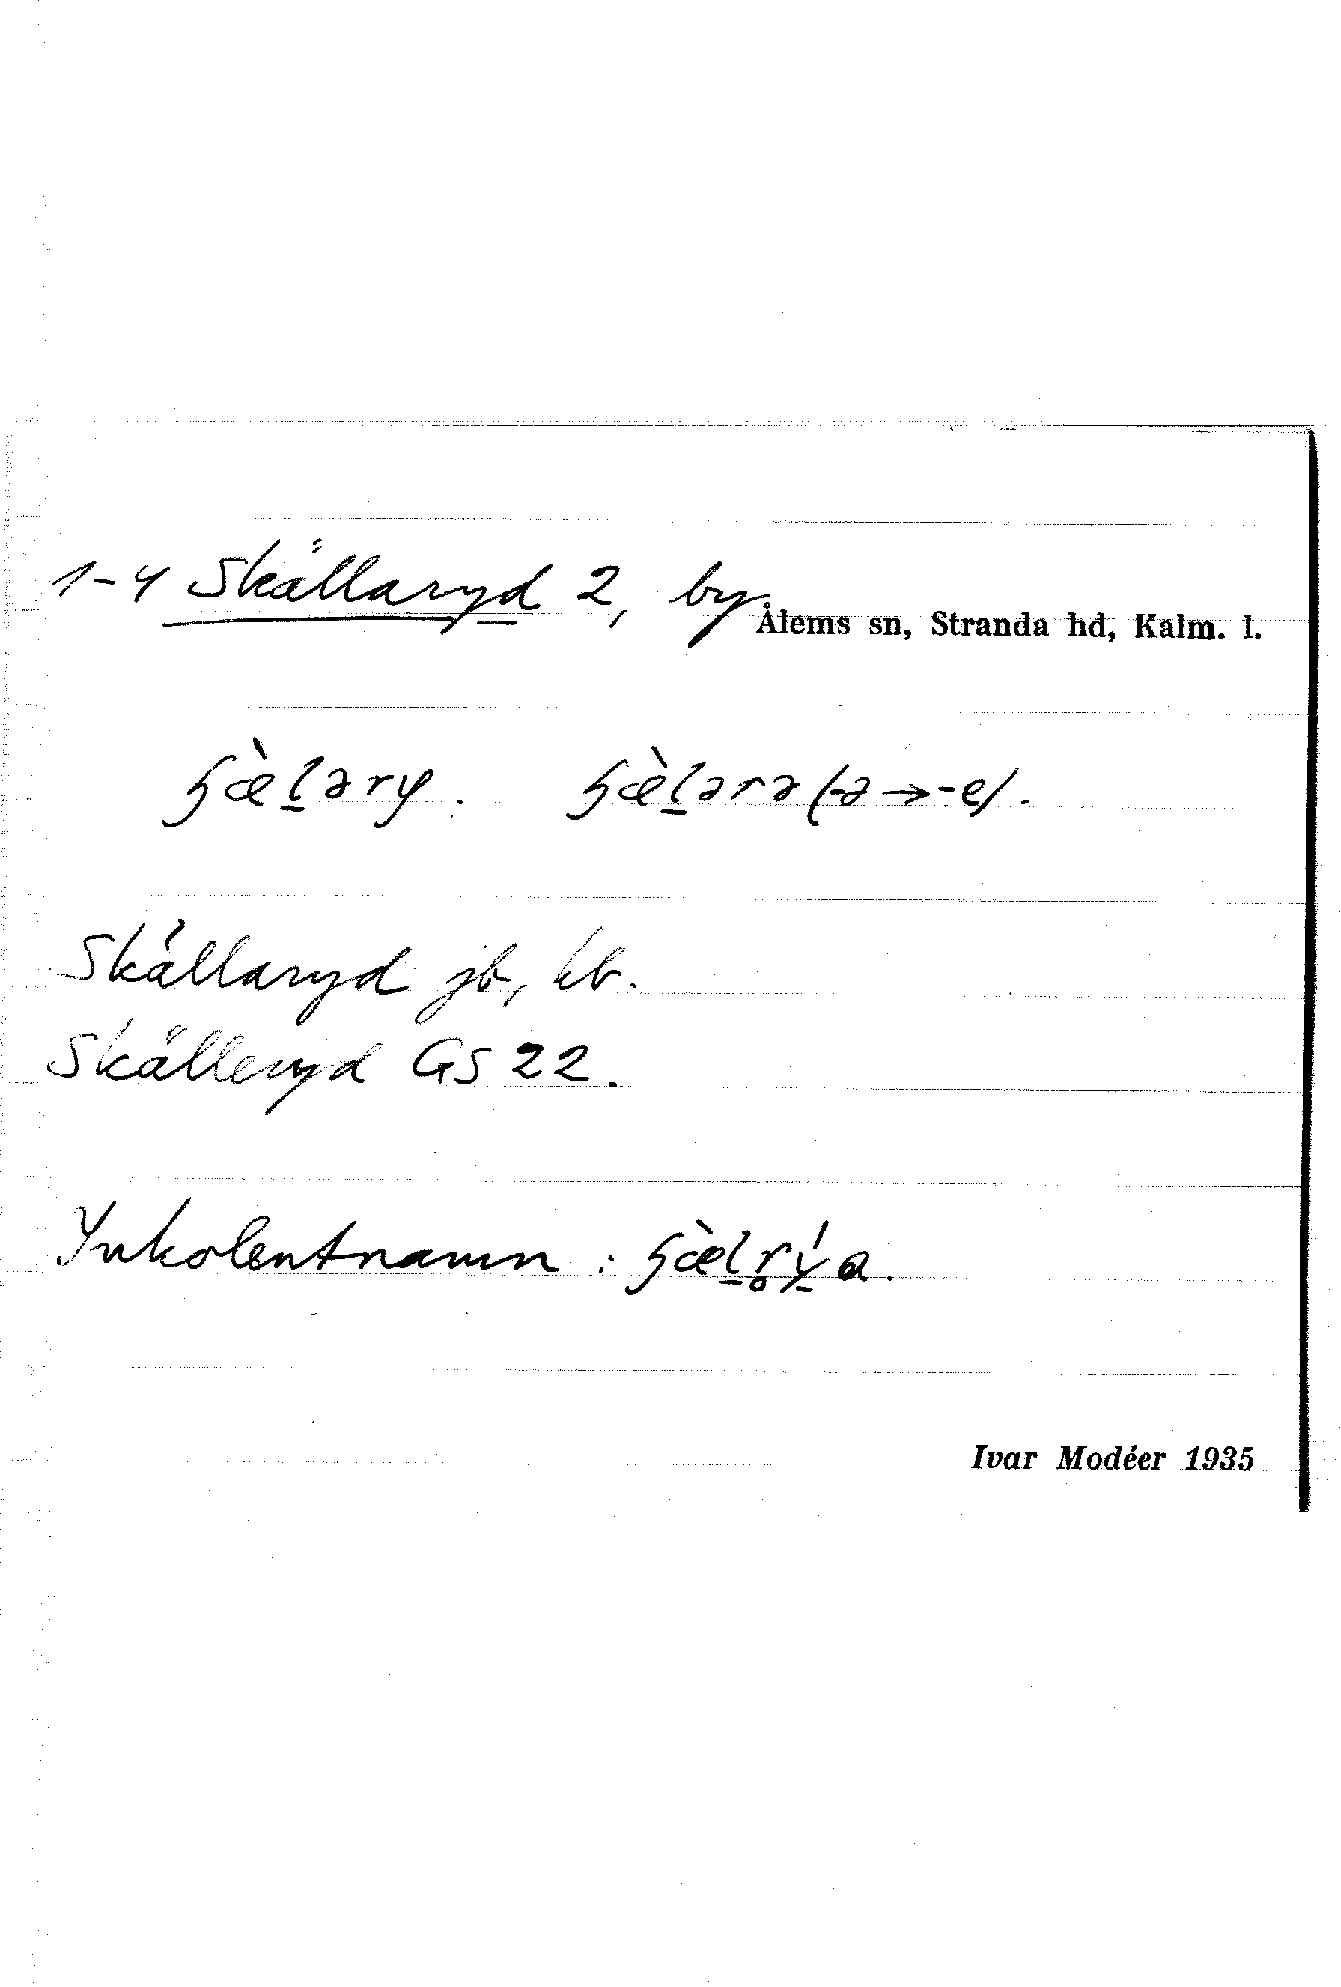 1-4 Skällaryd 2, by
Ålems sn, Stranda hd, Kalm. l.
ɧæ̀l̠əry. ɧæ̀l̠ərə (-ə → -e).
Skällaryd jb, kb.
Skälleryd GS 22.
Ynkolentnamn : ɧæ̀l̠r̥ý̠a.
Ivar Modéer 1935